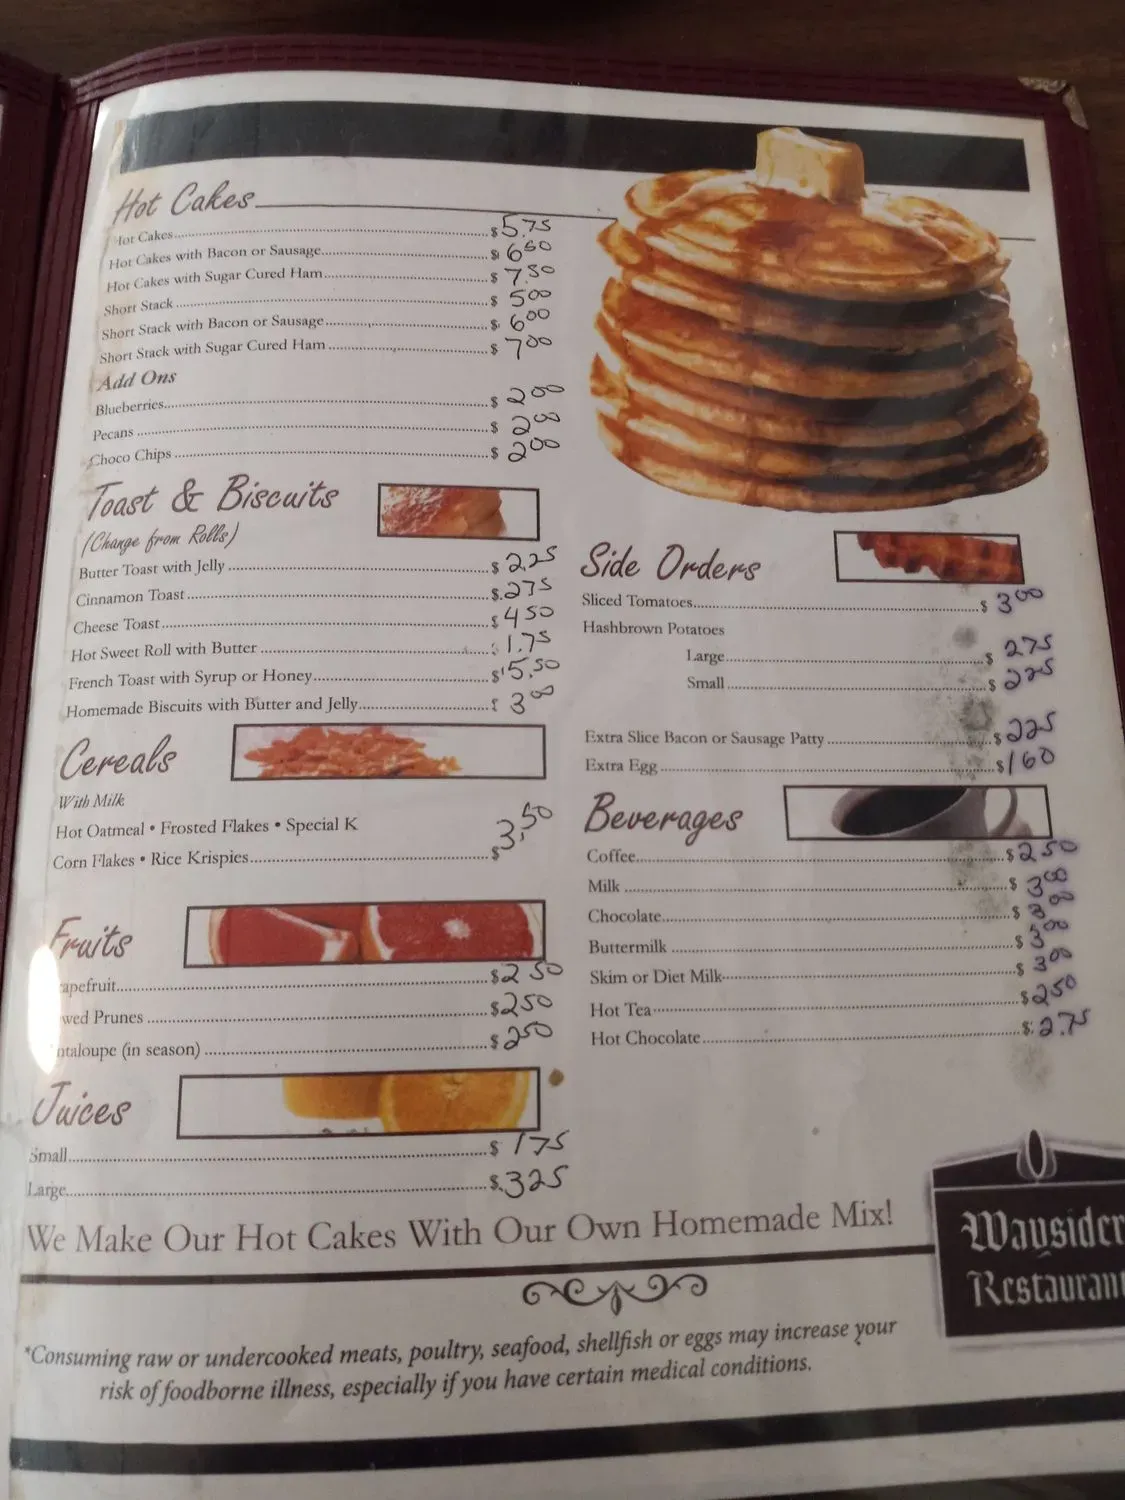 Hot Cakes
Hot Cakes $ 5.75
Hot Cakes with Bacon or Sausage $ 6.50
Hot Cakes with Sugar Cured Ham $ 7.50
Short Stack $ 5.00
Short Stack with Bacon or Sausage $ 6.00
Short Stack with Sugar Cured Ham $ 7.00
Add Ons
Blueberries $ 2.00
Pecans $ 2.00
Choco Chips $ 2.00
Toast & Biscuits
(Change from Rolls)
Butter Toast with Jelly $ 2.25
Cinnamon Toast $ 2.75
Cheese Toast $ 4.50
Hot Sweet Roll with Butter $ 1.75
French Toast with Syrup or Honey $ 5.50
Homemade Biscuits with Butter and Jelly $ 3.00
Cereals
With Milk
Hot Oatmeal • Frosted Flakes • Special K
Corn Flakes • Rice Krispies $ 3.50
Fruits
apefruit $ 2.50
wed Prunes $ 2.50
ntaloupe (in season) $ 2.50
Juices
Small $ 1.75
Large $ 3.25
Side Orders
Sliced Tomatoes $ 3.00
Hashbrown Potatoes
Large $ 2.75
Small $ 2.25
Extra Slice Bacon or Sausage Patty $ 2.25
Extra Egg $ 1.60
Beverages
Coffee $ 2.50
Milk $ 3.00
Chocolate $ 3.00
Buttermilk $ 3.00
Skim or Diet Milk $ 3.00
Hot Tea $ 2.50
Hot Chocolate $ 2.75
We Make Our Hot Cakes With Our Own Homemade Mix!
Waysider
Restauran
*Consuming raw or undercooked meats, poultry, seafood, shellfish or eggs may increase your
risk of foodborne illness, especially if you have certain medical conditions.